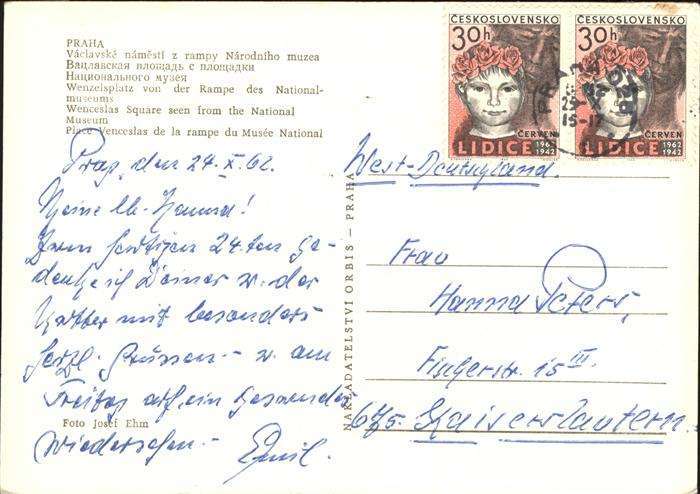 PRAHA
Václavské náměstí z rampy Národního muzea
Вацлавская площадь с площадки
Национального музея
Wenzelsplatz von der Rampe des National-
museums
Wenceslas Square seen from the National
Museum
Place Venceslas de la rampe du Musée National
Prag, den 24. X. 62.
Meine lb. Hanna!
Zum heutigen 24.ten ge-
denke ich Deiner u. der
Mutter mit besonders
herzl. Grüssen - u. am
Freitag auf ein gesundes
Wiedersehen. -
Emil.
Foto Josef Ehm
NAKLADATELSTVÍ ORBIS — PRAHA
ČESKOSLOVENSKO
30h
ČERVEN
LIDICE 1962
1942
ČESKOSLOVENSKO
30h
ČERVEN
LIDICE 1962
1942
West-Deutschland.
Frau
Hanna Peters,
Fingerstr. 15 III.
675. Kaiserslautern.